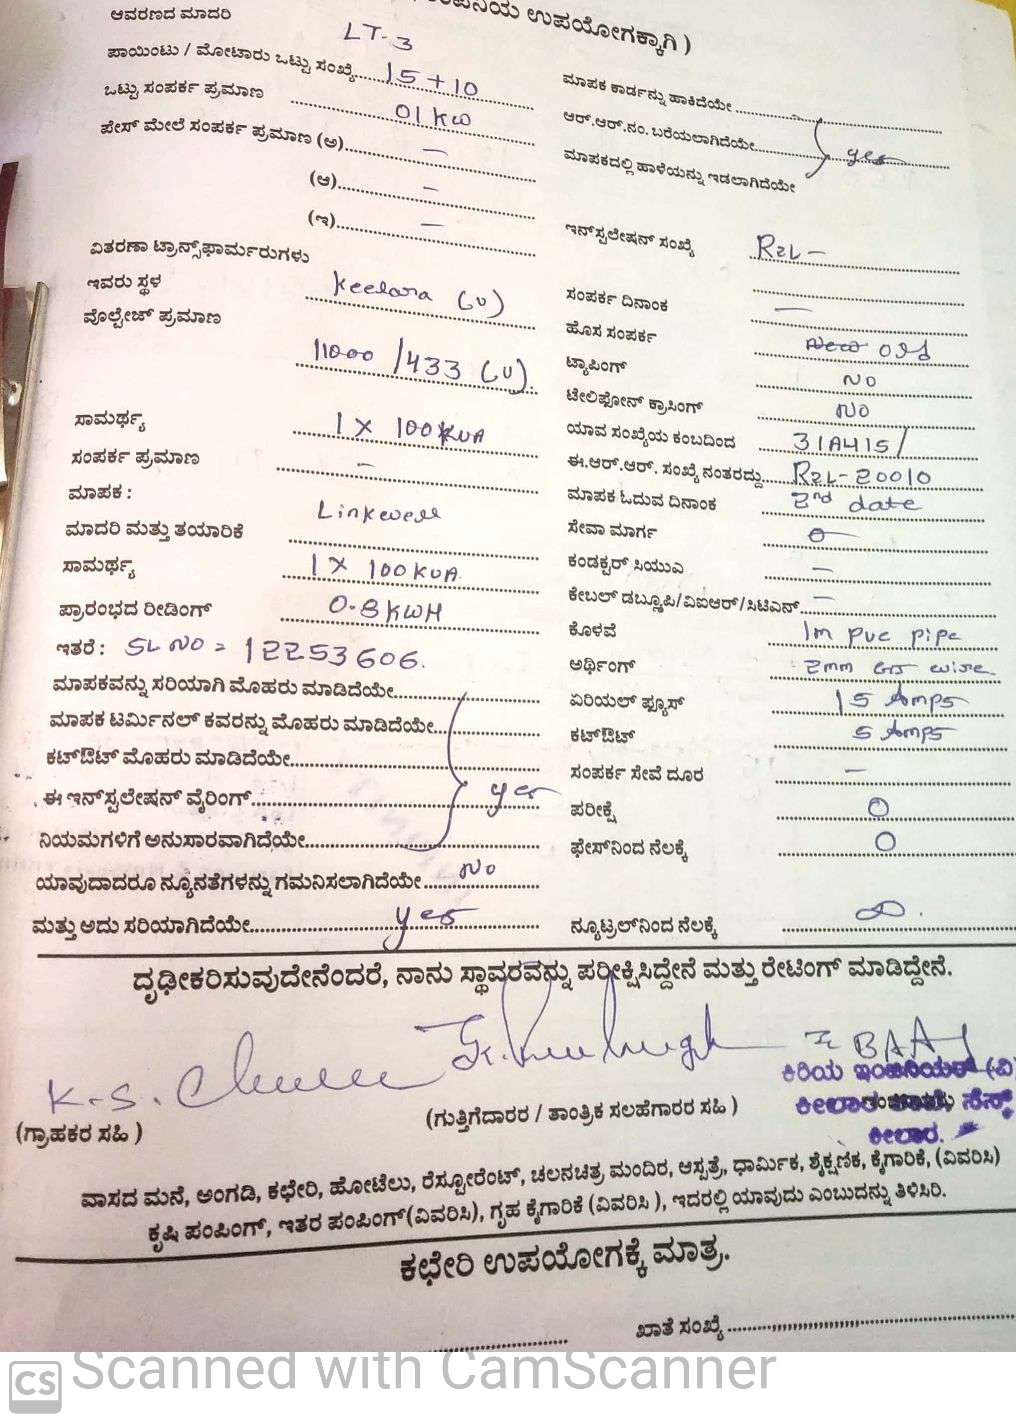 ಉಪಯೋಗಕ್ಕಾಗಿ )
ಆವರಣದ ಮಾದರಿ LT-3
ಪಾಯಿಂಟು / ಮೋಟಾರು ಒಟ್ಟು ಸಂಖ್ಯೆ 15+10
ಒಟ್ಟು ಸಂಪರ್ಕ ಪ್ರಮಾಣ 01 kw
ಪೇಸ್ ಮೇಲೆ ಸಂಪರ್ಕ ಪ್ರಮಾಣ (ಅ) –
(ಆ) –
(ಇ) –
ವಿತರಣಾ ಟ್ರಾನ್ಸ್‌ಫಾರ್ಮರುಗಳು
ಇವರು ಸ್ಥಳ Keelara (U)
ವೊಲ್ಟೇಜ್ ಪ್ರಮಾಣ
11000 /433 (U)
ಸಾಮರ್ಥ್ಯ 1 X 100KVA
ಸಂಪರ್ಕ ಪ್ರಮಾಣ –
ಮಾಪಕ :
ಮಾದರಿ ಮತ್ತು ತಯಾರಿಕೆ Linkwell
ಸಾಮರ್ಥ್ಯ 1 X 100KVA
ಪ್ರಾರಂಭದ ರೀಡಿಂಗ್ 0.8KWH
ಇತರೆ : SL NO = 12253606.
ಮಾಪಕವನ್ನು ಸರಿಯಾಗಿ ಮೊಹರು ಮಾಡಿದೆಯೇ
ಮಾಪಕ ಟರ್ಮಿನಲ್ ಕವರನ್ನು ಮೊಹರು ಮಾಡಿದೆಯೇ
ಕಟ್‌ಔಟ್ ಮೊಹರು ಮಾಡಿದೆಯೇ
ಈ ಇನ್‌ಸ್ಟಲೇಷನ್ ವೈರಿಂಗ್ yes
ನಿಯಮಗಳಿಗೆ ಅನುಸಾರವಾಗಿದೆಯೇ
ಯಾವುದಾದರೂ ನ್ಯೂನತೆಗಳನ್ನು ಗಮನಿಸಲಾಗಿದೆಯೇ No
ಮತ್ತು ಅದು ಸರಿಯಾಗಿದೆಯೇ yes
ಮಾಪಕ ಕಾರ್ಡನ್ನು ಹಾಕಿದೆಯೇ
ಆರ್.ಆರ್.ನಂ. ಬರೆಯಲಾಗಿದೆಯೇ yes
ಮಾಪಕದಲ್ಲಿ ಹಾಳೆಯನ್ನು ಇಡಲಾಗಿದೆಯೇ
ಇನ್‌ಸ್ಟಲೇಷನ್ ಸಂಖ್ಯೆ R2L –
ಸಂಪರ್ಕ ದಿನಾಂಕ –
ಹೊಸ ಸಂಪರ್ಕ New Old
ಟ್ಯಾಪಿಂಗ್ NO
ಟೇಲಿಫೋನ್ ಕ್ರಾಸಿಂಗ್ NO
ಯಾವ ಸಂಖ್ಯೆಯ ಕಂಬದಿಂದ 31A415/
ಈ.ಆರ್.ಆರ್. ಸಂಖ್ಯೆ ನಂತರದ್ದು R2L-20010
ಮಾಪಕ ಓದುವ ದಿನಾಂಕ 2nd date
ಸೇವಾ ಮಾರ್ಗ 0
ಕಂಡಕ್ಟರ್ ಸಿಯುಎ –
ಕೇಬಲ್ ಡಬ್ಲೂಪಿ/ವಿಐಆರ್/ಸಿಟಿಎಸ್ –
ಕೊಳವೆ 1m pvc pipe
ಅರ್ಥಿಂಗ್ 2mm GI wire
ಏರಿಯಲ್ ಫ್ಯೂಸ್ 15 Amps
ಕಟ್‌ಔಟ್ 5 Amps
ಸಂಪರ್ಕ ಸೇವೆ ದೂರ –
ಪರೀಕ್ಷೆ 0
ಫೇಸ್‌ನಿಂದ ನೆಲಕ್ಕೆ 0
ನ್ಯೂಟ್ರಲ್‌ನಿಂದ ನೆಲಕ್ಕೆ ∞.
ದೃಢೀಕರಿಸುವುದೇನೆಂದರೆ, ನಾನು ಸ್ಥಾವರವನ್ನು ಪರೀಕ್ಷಿಸಿದ್ದೇನೆ ಮತ್ತು ರೇಟಿಂಗ್ ಮಾಡಿದ್ದೇನೆ.
K.S.
(ಗ್ರಾಹಕರ ಸಹಿ )
(ಗುತ್ತಿಗೆದಾರರ / ತಾಂತ್ರಿಕ ಸಲಹೆಗಾರರ ಸಹಿ )
ಕಿರಿಯ ಇಂಜಿನಿಯರ್ (ವಿ)
ಕೀಲಾರ.
ವಾಸದ ಮನೆ, ಅಂಗಡಿ, ಕಛೇರಿ, ಹೋಟೆಲು, ರೆಸ್ಟೋರೆಂಟ್, ಚಲನಚಿತ್ರ ಮಂದಿರ, ಆಸ್ಪತ್ರೆ, ಧಾರ್ಮಿಕ, ಶೈಕ್ಷಣಿಕ, ಕೈಗಾರಿಕೆ, (ವಿವರಿಸಿ)
ಕೃಷಿ ಪಂಪಿಂಗ್, ಇತರ ಪಂಪಿಂಗ್(ವಿವರಿಸಿ), ಗೃಹ ಕೈಗಾರಿಕೆ (ವಿವರಿಸಿ ), ಇದರಲ್ಲಿ ಯಾವುದು ಎಂಬುದನ್ನು ತಿಳಿಸಿರಿ.
ಕಛೇರಿ ಉಪಯೋಗಕ್ಕೆ ಮಾತ್ರ.
ಖಾತೆ ಸಂಖ್ಯೆ
CS Scanned with CamScanner